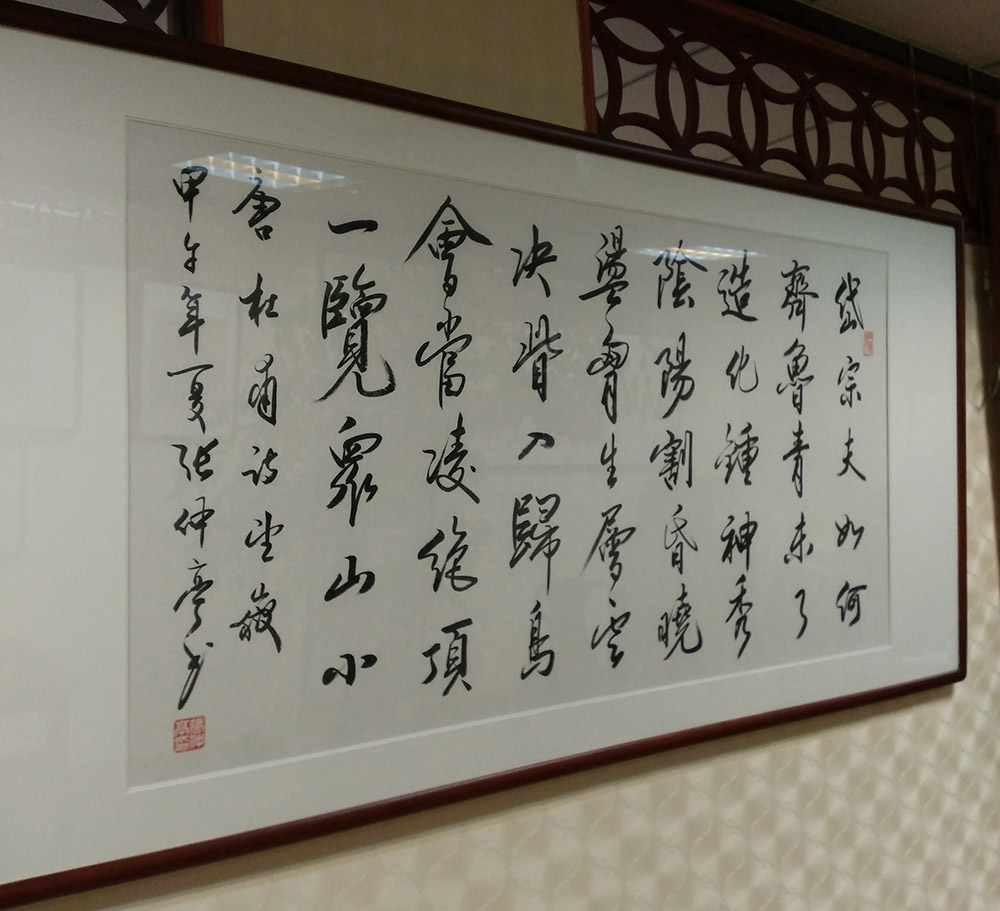 岱宗夫如何
齊魯青未了
造化鍾神秀
陰陽割昏曉
盪胷生層雲
决眥入歸鳥
會當凌絶頂
一覽衆山小
唐杜甫詩望嶽
甲午年夏張仲亭书